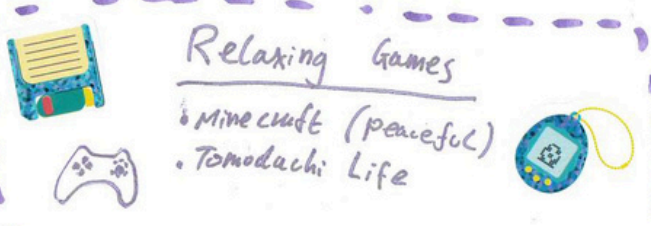 Relaxing Games
• Minecraft (peaceful)
• Tomodachi Life